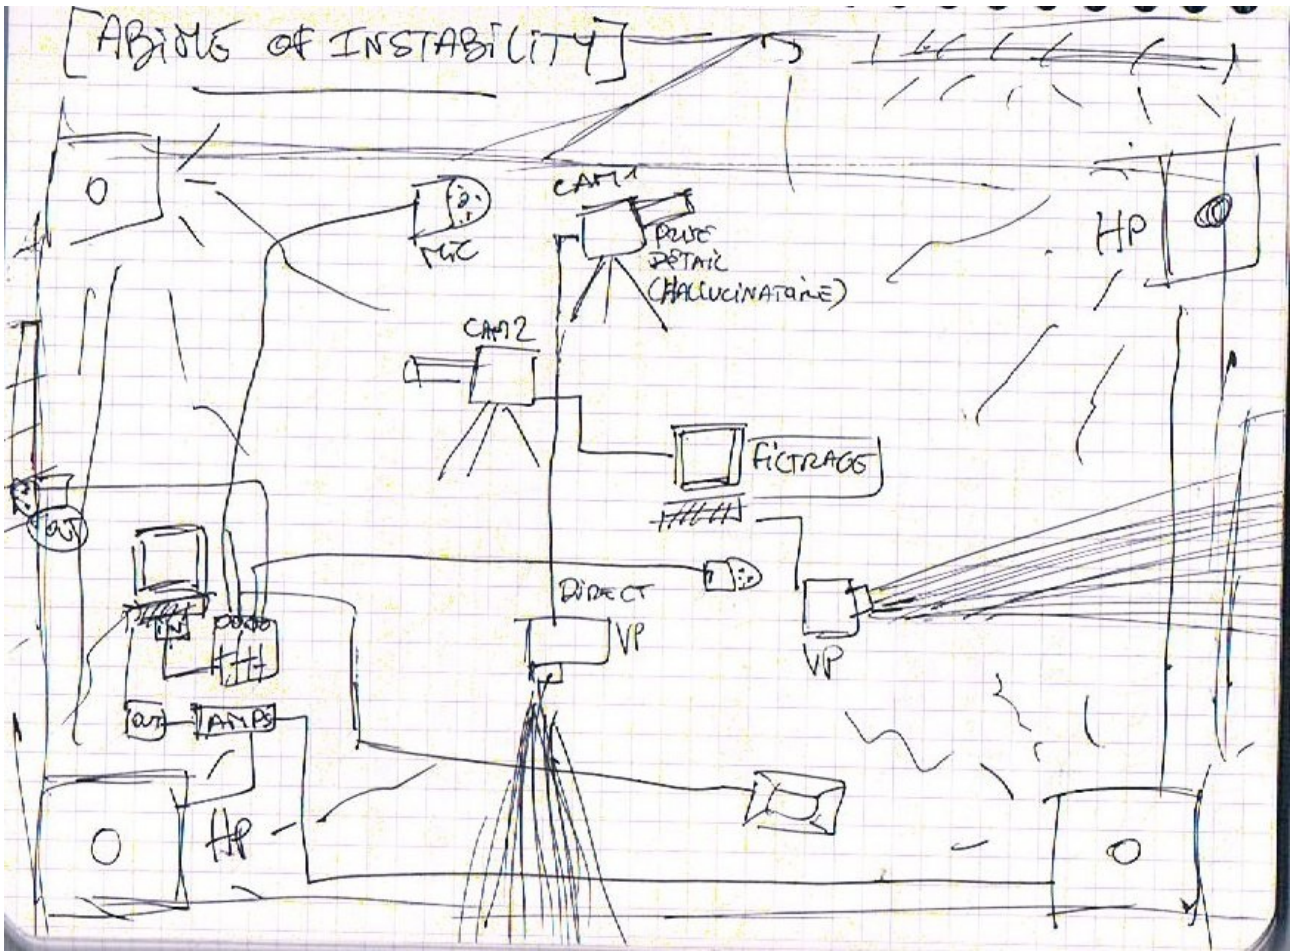 [ABIME OF INSTABILITY]
CAM1
MIC
HP
DETAIL
(HALLUCINATOIRE)
CAM2
FILTRAGE
OUT
DIRECT
IN
VP
VP
OUT
AMPS
HP